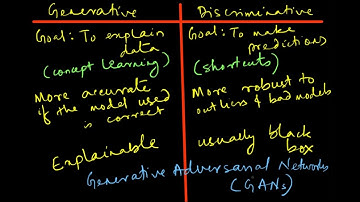 Generative
Goal: To explain
data
(concept learning)
More accurate
if the model used
is correct
Explainable
Discriminative
Goal: To make
predictions
(shortcuts)
More robust to
outliers & bad models
usually black
box
Generative Adversarial Networks
(GANs)